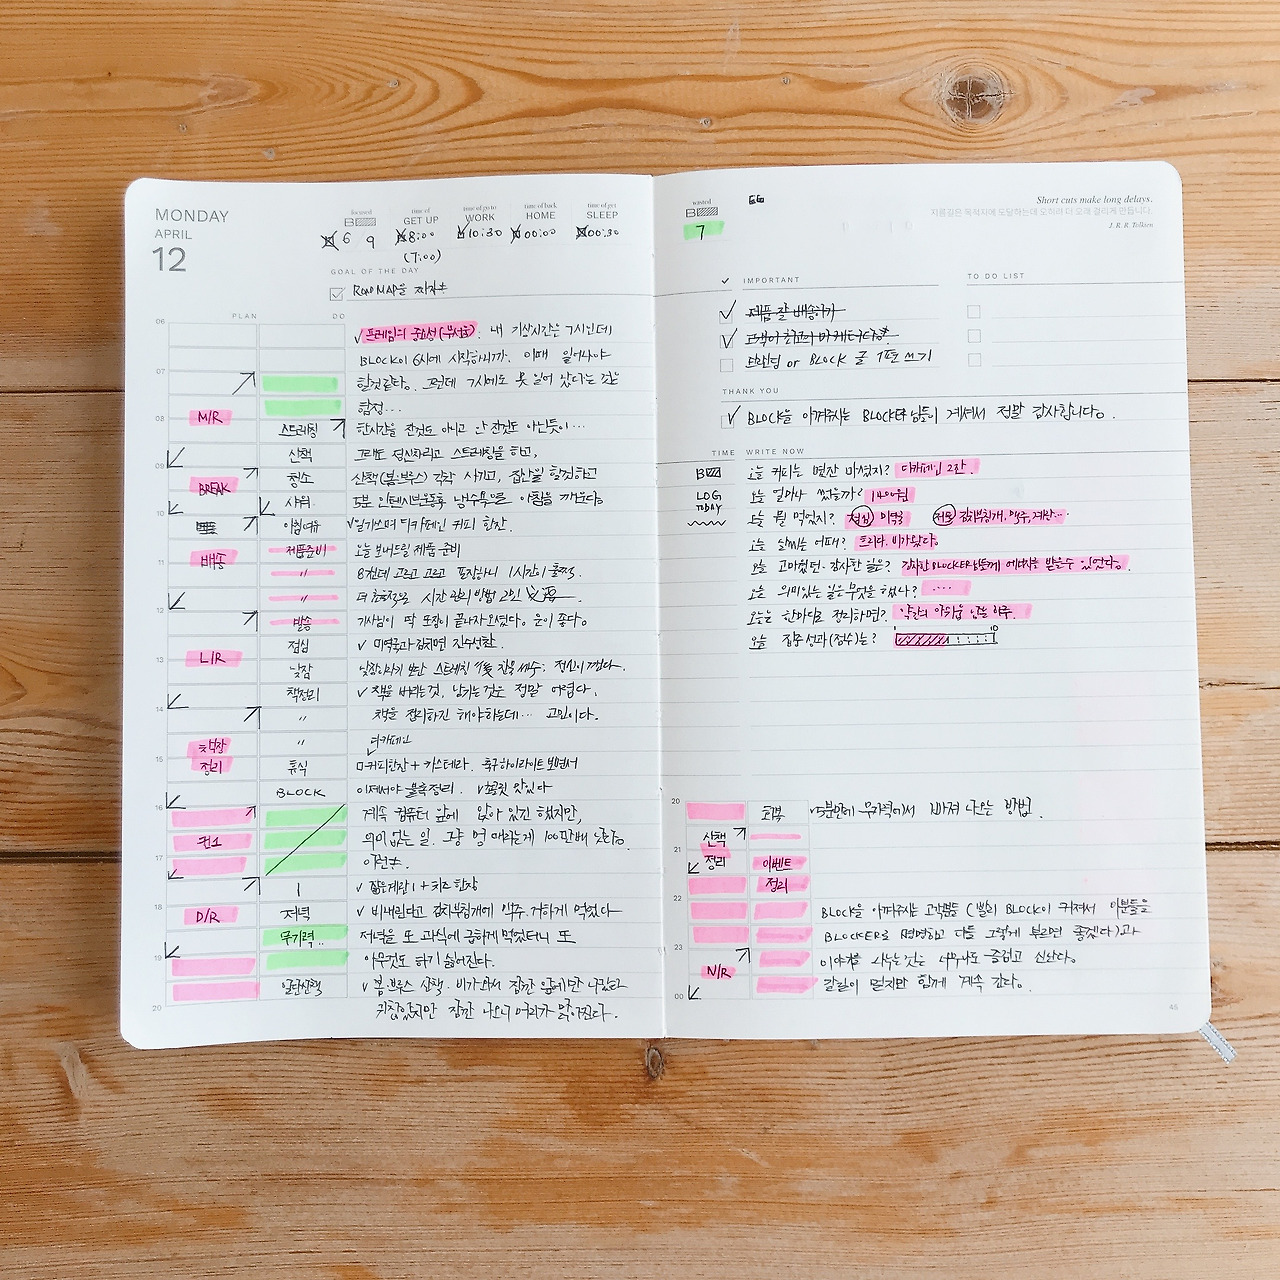 MONDAY
APRIL
12
focused
B
6 9
time of
GET UP
8:00
(7:00)
time of go to
WORK
10:30
time of back
HOME
00:00
time of get
SLEEP
00:30
GOAL OF THE DAY
ROADMAP을 지키는
PLAN DO
06
프레임의 중요성 내 기상시간은 7시인데
BLOCK이 6시에 시작하니까. 이때 일어나야
07
할것같다. 그런데 7시에도 못 일어 났다는 것은
함정...
M/R
08
스트레칭 한시간을 잔것도 아니고 안 잔것도 아닌듯이...
산책 그래도 정신차리고 스트레칭을 하고,
09
청소 산책(봄.브루스) 각각 시키고, 집안일 할것하고
BREAK
샤워 5분 인텐시브운동후 냉수욕으로 아침을 깨운다.
10
아침여유 일기쓰며 디카페인 커피 한잔.
제품준비 오늘 보내드릴 제품 준비
배송
11
" 8건데 고르고 고르고 포장하니 1시간이 훌쩍.
" 더 효율적으로 시간 관리 방법 고민
12
발송 기사님이 딱 포장이 끝나자 오셨다. 운이 좋다.
점심 미역국과 김치면 진수성찬.
L/R
13
낮잠
책정리 책을 버리는것, 남기는것은 정말 어렵다.
14
" 책을 정리하긴 해야하는데... 고민이다.
책장
정리
" 디카페인
15
휴식 커피한잔 + 카스테라. 축구하이라이트 보면서
BLOCK 이제서야 블록정리.
16
계속 컴퓨터 앞에 앉아 있긴 했지만,
의미 없는 일. 그냥 멍 때리는게 100만배 낫다.
17
이런..
삶은계란 1 + 치즈 한장
18
D/R
저녁 비내린다고 김치부침개에 맥주. 거하게 먹었다
무기력.. 저녁을 또 과식에 급하게 먹었더니 또
19
아무것도 하기 싫어진다.
일단산책 봄.브루스 산책. 비가와서 잠깐 앞에만 나갔다
20
귀찮았지만 잠깐 나오니 머리가 맑아진다.
wasted
B
7
Short cuts make long delays.
지름길은 목적지에 도달하는데 오히려 더 오래 걸리게 만듭니다.
J. R. R. Tolkien
IMPORTANT
TO DO LIST
제품 잘 배송하기
고객이 최고의 마케터다.
브랜딩 or BLOCK 글 1편 쓰기
THANK YOU
BLOCK을 아껴주시는 BLOCKER님들이 계셔서 정말 감사합니다.
TIME WRITE NOW
B
오늘 커피는 몇잔 마셨지? 디카페인 2잔.
LOG
TODAY
오늘 얼마나 썼을까? 1400원
오늘 뭘 먹었지? 점심 미역국 저녁 김치부침개, 맥주, 계란...
오늘 날씨는 어때? 흐리다. 비가왔다.
오늘 고마웠던. 감사한 일은? 감사한 BLOCKER님들께 에너지를 받을수 있었다.
오늘 의미있는 일은 무엇을 했나? ....
오늘을 한마디로 정리하면? 약간의 아쉬움 남는 하루.
오늘 집중 성과(점수)는? 1 10
20
회복 5분만에 무기력에서 빠져 나오는 방법.
산책
21
정리 이벤트
정리
22
BLOCK을 아껴주시는 고객님들 (빨리 BLOCK이 커져서 이분들을
BLOCKER로 명명하고 다들 그렇게 부르면 좋겠다)과
23
이야기를 나누는것은 너무나도 즐겁고 신난다.
N/R
갈길이 멀지만 함께 계속 간다.
00
45